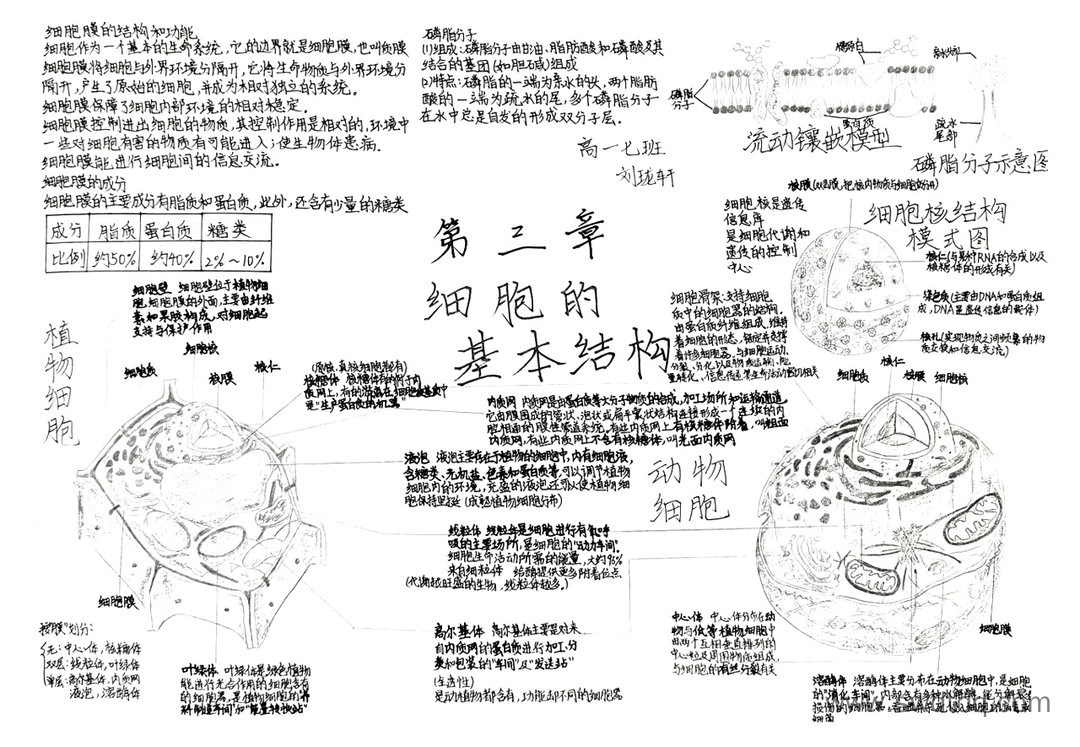 细胞膜的结构和功能
细胞作为一个基本的生命系统，它的边界就是细胞膜，也叫质膜
细胞膜将细胞与外界环境分隔开，它将生命物质与外界环境分
隔开，产生了原始的细胞，并成为相对独立的系统。
细胞膜保障了细胞内部环境的相对稳定。
细胞膜控制进出细胞的物质，其控制作用是相对的，环境中
一些对细胞有害的物质有可能进入；使生物体患病。
细胞膜能进行细胞间的信息交流。
细胞膜的成分
细胞膜的主要成分有脂质和蛋白质，此外，还含有少量的糖类
成分 脂质 蛋白质 糖类
比例 约50% 约40% 2%~10%
磷脂分子
(1)组成：磷脂分子由甘油、脂肪酸和磷酸及其
结合的基团(如胆碱)组成
(2)特点：磷脂的一端为亲水的头，两个脂肪
酸的一端为疏水的尾，多个磷脂分子
在水中总是自发的形成双分子层。
高一七班
刘珑轩
磷脂
分子
蛋白质
流动镶嵌模型
疏水
尾部
磷脂分子示意图
第三章
细胞的
基本结构
细胞核是遗传
信息库
是细胞代谢和
遗传的控制
中心
核膜(双层膜，把核内物质与细胞质分开)
细胞核结构
模式图
核仁(与某种RNA的合成以及
核糖体的形成有关)
染色质(主要由DNA和蛋白质组
成，DNA是遗传信息的载体)
核孔(实现核质之间频繁的物
质交换和信息交流)
细胞骨架：支持细胞
质中的细胞器的结构。
由蛋白质纤维组成，维持
着细胞的形态，锚定并支撑
着许多细胞器，与细胞运动、
分裂、分化以及物质运输、能
量转化、信息传递等生命活动密切相关
细胞壁 细胞壁位于植物细
胞细胞膜的外面，主要由纤维
素和果胶构成，对细胞起
支持与保护作用
植物细胞
细胞核
细胞质
核膜
核仁
(原核、真核细胞都有)
内质网 内质网是由蛋白质等大分子物质的合成、加工场所和运输通道
它由膜围成的管状、泡状或扁平囊状结构连接形成一个连续的内
腔相通的膜性管道系统。有些内质网上有核糖体附着，叫粗面
内质网，有些内质网上不含有核糖体，叫光面内质网
液泡 液泡主要存在于植物的细胞中，内有细胞液，
含糖类、无机盐、色素和蛋白质等，可以调节植物
细胞内的环境，充盈的液泡还可以使植物细
胞保持坚挺(成熟植物细胞分布)
线粒体 线粒体是细胞进行有氧呼
吸的主要场所，是细胞的"动力车间"。
细胞生命活动所需的能量，大约95%
来自线粒体
(代谢越旺盛的生物，线粒体越多。)
动物
细胞
细胞质
核仁
核膜
细胞核
细胞膜
高尔基体 高尔基体主要是对来
自内质网的蛋白质进行加工、分
类和包装的"车间"及"发送站"
是动植物都含有，功能却不同的细胞器
中心体 中心体分布在动
物与低等植物细胞中
由两个互相垂直排列的
中心粒及周围物质组成，
与细胞的有丝分裂有关
细胞膜
按膜划分：
无：中心体，核糖体
双层：线粒体，叶绿体
单层：高尔基体，内质网
液泡，溶酶体
叶绿体 叶绿体是绿色植物
能进行光合作用的细胞含有
的细胞器，是植物细胞的"养
料制造车间"和"能量转换站"
溶酶体 溶酶体主要分布在动物细胞中，是细胞
的"消化车间"，内部含有多种水解酶，能分解衰老